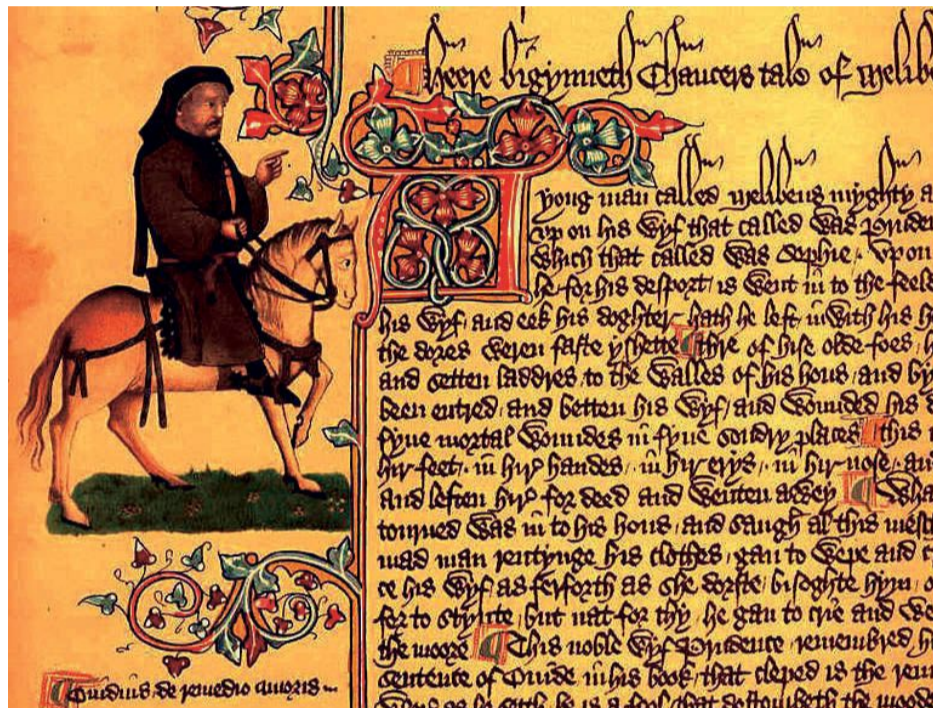 Heere bigynneth Chaucers tale of Melibe
yong man called Melibeus myghty a
vp on his wyf that called was Pruden
Which that called was Sophie vpon
he for his desport is went in to the feeld
his wyf and eek his doghter hath he left inwith his h
the dores weren faste yshette thre of hise olde foes h
and setten laddres to the walles of his hous and by
been entred and betten his wyf and wounded his d
fyue mortal woundes in fyue sondry places this
hir feet in hir handes in hir erys in hir nose and
and leften hir for deed and wenten awey Whan
tourned was in to his hous and saugh al this mesch
mad man rentynge his clothes gan to wepe and c
ce his wyf as ferforth as she dorste bisoghte hym
for to stynte but nat for thy he gan to crie and we
the moore This noble wyf Prudence remembred h
sentence of Ouide in his book that cleped is the rem
he is a fool that destourbeth the mooder
Ouidius de remedio amoris